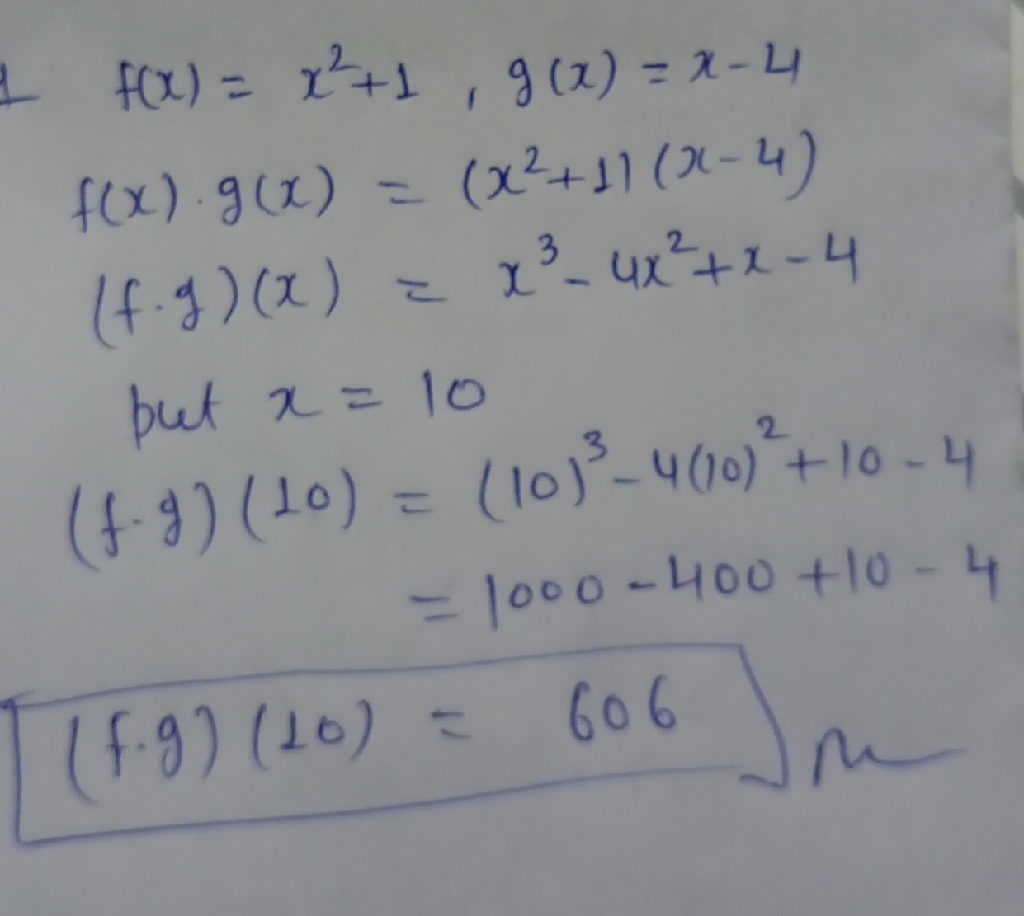 1 f(x) = x²+1 , g(x) = x-4
f(x).g(x) = (x²+1) (x-4)
(f.g)(x) = x³-4x²+x-4
put x = 10
(f.g)(10) = (10)³-4(10)²+10-4
= 1000-400+10-4
(f.g)(10) = 606